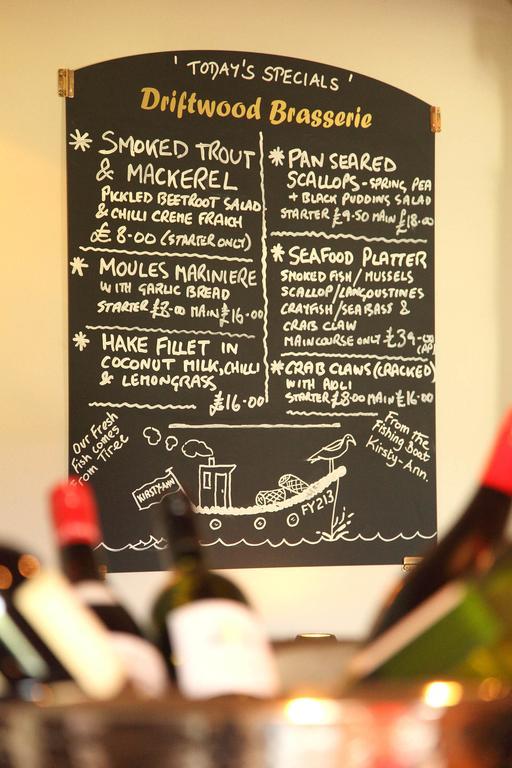 'TODAY'S SPECIALS'
Driftwood Brasserie
* SMOKED TROUT
& MACKEREL
PICKLED BEETROOT SALAD
& CHILLI CREME FRAICH
£8-00 (STARTER ONLY)
* MOULES MARINIERE
WITH GARLIC BREAD
STARTER £8-00 MAIN £16-00
* HAKE FILLET IN
COCONUT MILK, CHILLI
& LEMONGRASS
£16-00
* PAN SEARED
SCALLOPS - SPRING, PEA
+ BLACK PUDDING SALAD
STARTER £9-50 MAIN £18-00
* SEAFOOD PLATTER
SMOKED FISH / MUSSELS
SCALLOP / LANGOUSTINES
CRAYFISH / SEA BASS &
CRAB CLAW
MAIN COURSE ONLY £39-00
* CRAB CLAWS (CRACKED)
WITH AOLI
STARTER £8-00 MAIN £16-00
Our Fresh
Fish comes
From Tiree
From the
Fishing Boat
Kirsty-Ann.
KIRSTY-ANN
FY213